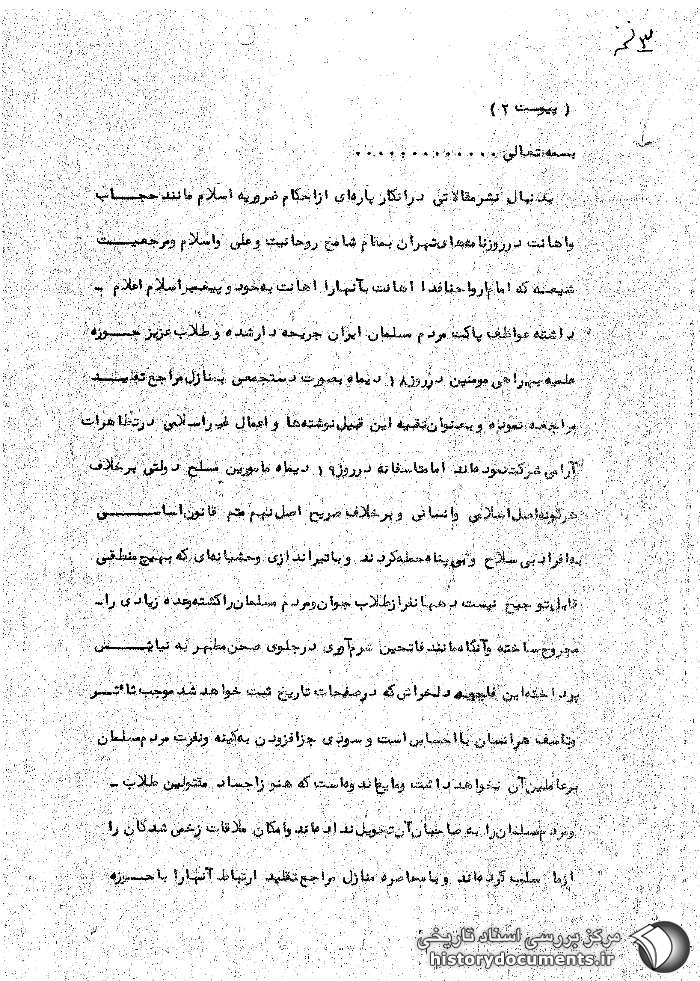 ۳ نسخه
( پیوست ۲ )
بسمه تعالی . . . . . . . . . . . . .
بدنبال نشرمقالاتی درانکار پاره‌ای ازاحکام ضروریه اسلام مانند حجـــاب
واهانت درروزنامه‌های تهران بمقام شامخ روحانیت وعلی واسلام ومرجعیــت
شیعــه که امام ارواحنافدا اهانت بآنهارا اهانت به‌خود وپیغمبراسلام اعلام ـ
داشته عواطف پاک مردم مسلمان ایران جریحه دارشده و طلاب عزیز حـــوزه
علمیه بهمراهی مومنین درروز ۱۸ دیماه بصورت دستجمعی بمنازل مراجع تقلیـــد
مراجعه نموده و بعنوان تقبیه این قبیل نوشته‌ها و اعمال غیراسلامی درتظاهرات
آرامی شرکت نموده‌اند امامتاسفانه درروز ۱۹ دیماه مامورین مسلح دولتی برخلاف
هرگونه اصل اسلامی وانسانی و برخلاف صریح اصل نهم متمم قانون اساســـی
به‌افراد بی سلاح وبی پناه حمله کردند و باتیراندازی وحشیانه‌ای که بهیچ منطقی
قابل توجیح نیست دهها نفرازطلاب جوان ومردم مسلمان راکشته وعده زیادی را ـ
مجروح ساخته وآنگاه مانند فاتحین شرم‌آوری درجلوی صحن مطهر به نیایـــش
پرداخته‌این فاجعه دلخراش که درصفحات تاریخ ثبت خواهد شد موجب تاثـــر
وتاسف هرانسان بااحساس است و سودی جزافزودن به‌کینه ونفرت مردم مسلمان
برعاملین‌آن نخواهد داشت ومایع‌اندوه‌است که هنوزاجساد مقتولین طلاب ـ
ومردم مسلمان را به صاحبان آن تحویل نداده‌اند وامکان ملاقات زخمی شدگان را
ازما سلب کرده‌اند و بامحاصره منازل مراجع تقلید ارتباط آنهارا باحـــوزه
مرکز بررسی اسناد تاریخی
historydocuments.ir